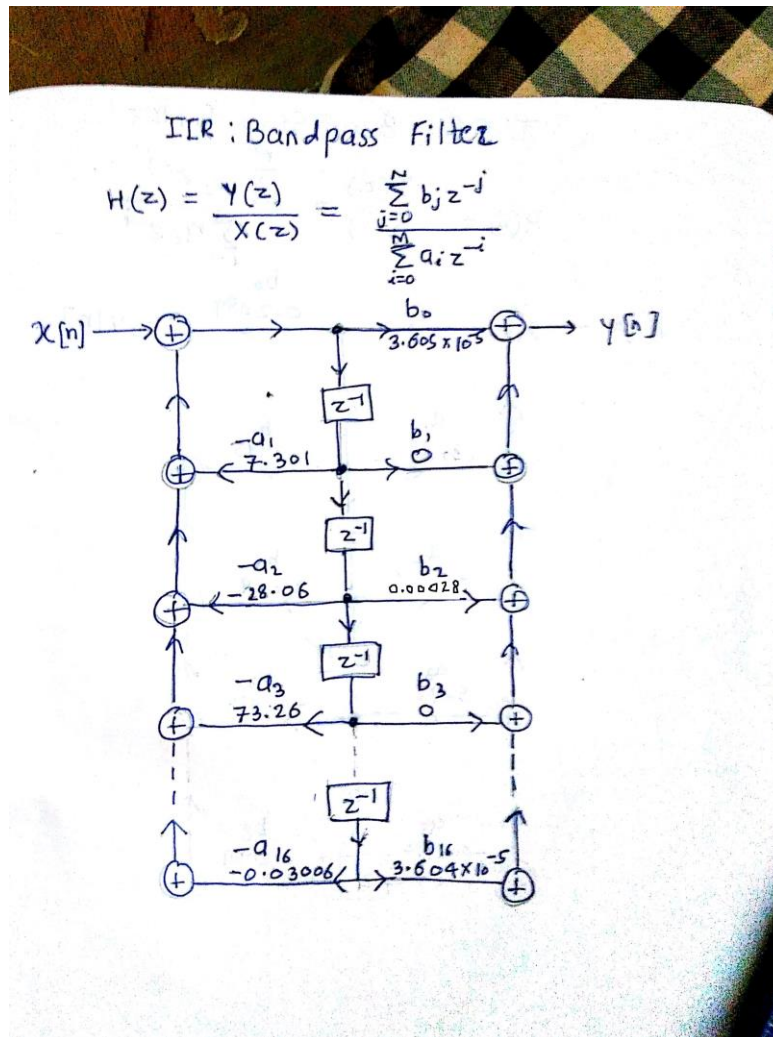 IIR : Bandpass Filter
H(z) = Y(z) / X(z) = N Σ j=0 bj z^-j / M Σ i=0 ai z^-i
X[n] + b0 3.605 × 10^-5 + Y[n]
z^-1
+ -a1 7.301 b1 0 +
z^-1
+ -a2 -28.06 b2 0.00028 +
z^-1
+ -a3 73.26 b3 0 +
z^-1
+ -a16 -0.03006 b16 3.604×10^-5 +